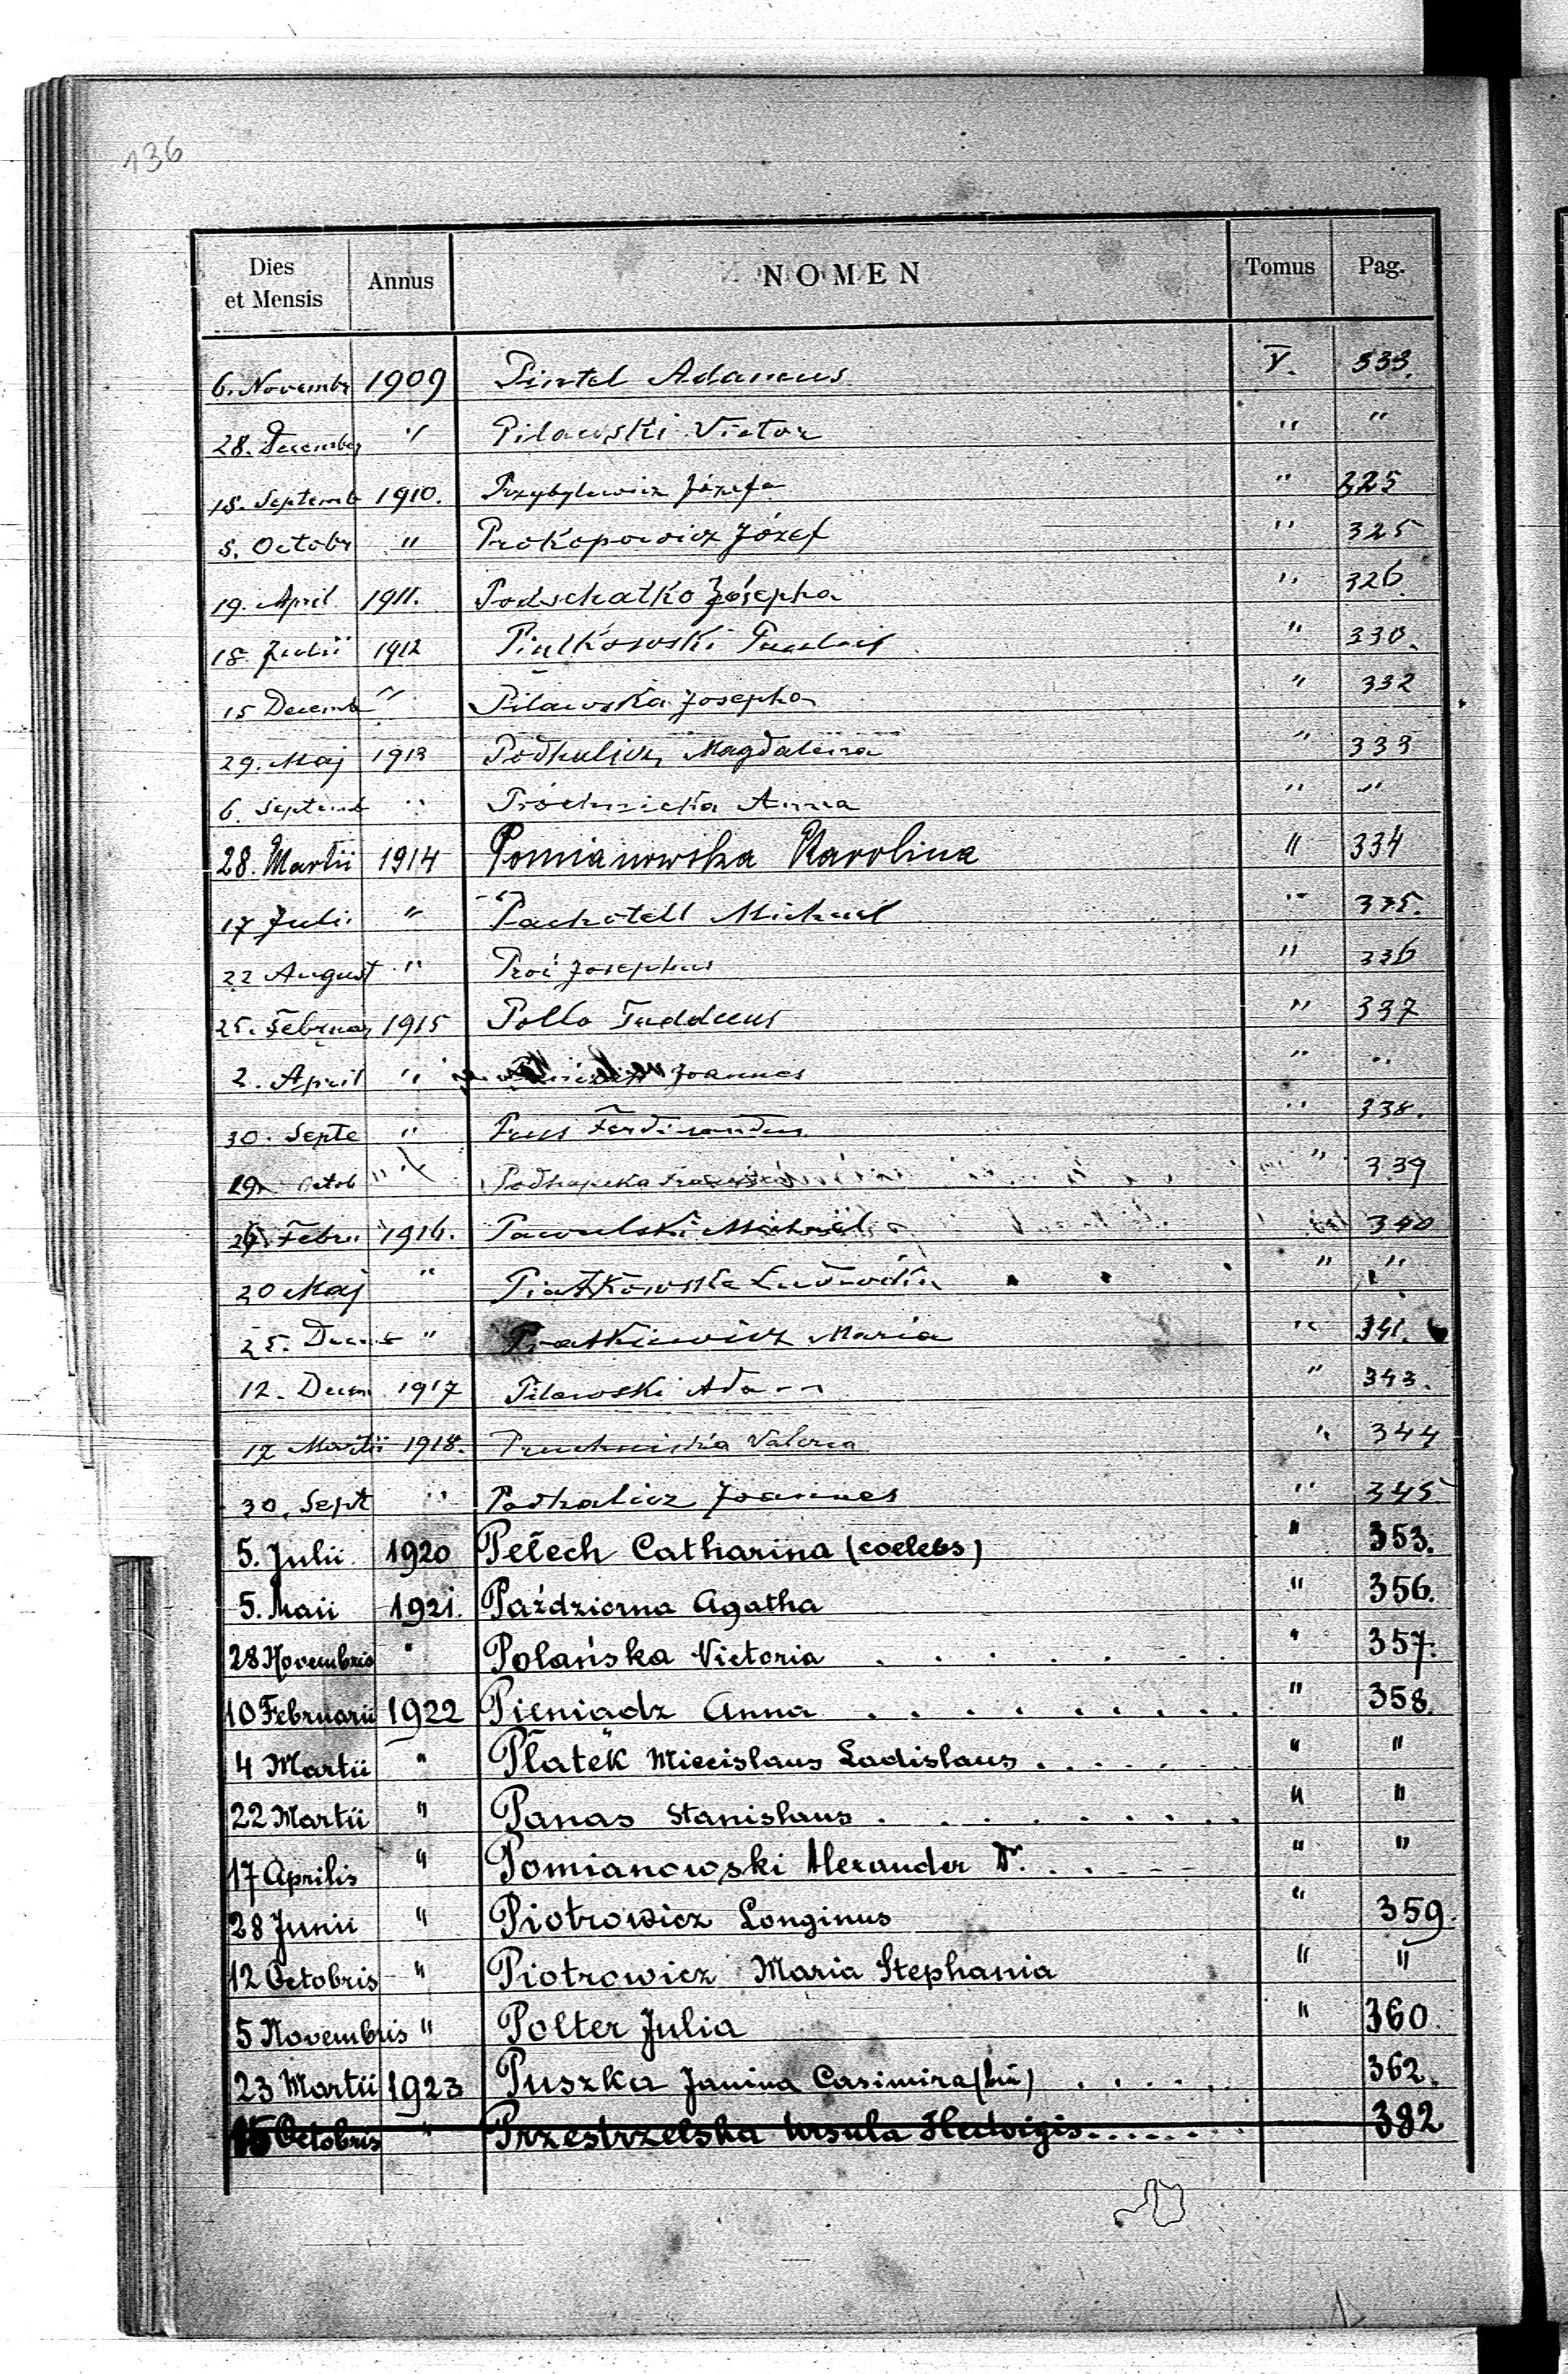 136
Dies et Mensis Annus NOMEN Tomus Pag.
6. Novembr 1909 Pintel Adamus V. 333.
28. December " Pilawski Victor " "
18. Septemb 1910. Przybylewicz Józefa " 325
5. Octobr " Prokopowicz Józef " 325
19. April 1911. Podschatko Josepha " 326
18. Julii 1912 " 330.
15 Decemb " Pilawska Josepha " 332
29. Maj 1913 Podhalicz Magdalena " 333
6. Septemb " Próchnicka Anna " "
28. Martii 1914 Pomianowska Karolina " 334
17 Juli " Pachotell Michael " 335.
22 August " Proć Josephus " 336
25. Februar 1915 Pollo Taddeus " 337
2. April " Joannes " "
30. Septe " Prus Ferdinandus " 338.
29 Octob " " 339
Febru 1916. Pawulski Michael 340
20 Maj " Piatkowska Ludovika " "
25. Decemb " Pratkiewicz Maria " 341.
12. Decem 1917 Pilawski Adam " 343.
17 Martii 1918. Pruchnicka Valeria " 344
30. Sept " Podhalicz Joannes " 345
5. Julii 1920 Pełech Catharina (coelebs) " 353.
5. Maii 1921. Paździorna Agatha " 356.
28 Novembris " Polańska Victoria . . . . . . . " 357.
10 Februarii 1922 Pieniadz Anna . . . . . . . . . " 358.
4 Martii " Płatek Miecislaus Ladislaus . . . . . " "
22 Martii " Panas Stanislaus . . . . . . . . " "
17 Aprilis " Pomianowski Alexander Dr. . . . - - " "
28 Junii " Piotrowicz Longinus " 359.
12 Octobris " Piotrowicz Maria Stephania " "
5 Novembris " Polter Julia " 360.
23 Martii 1923 Puszka Janina Casimira . . . . . 362.
15 Octobris " Przestrzelska Ursula Hedvigis . . . . . . . 382